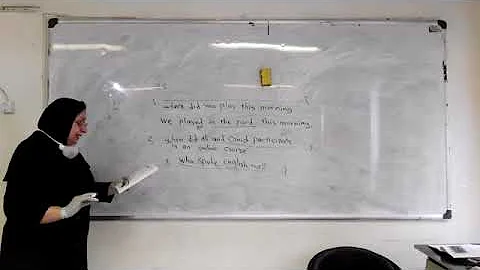 1. where did you play this morning
We played in the yard this morning.
2. when did Ali and Omid participate
in an online course
3. Who spoke English